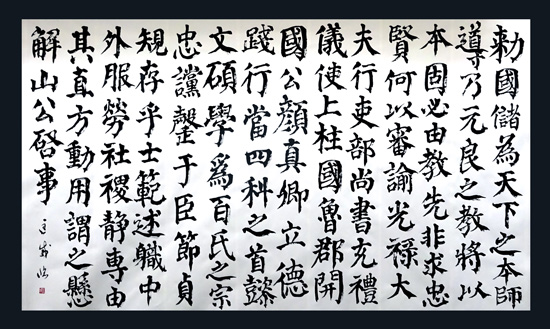 勅國儲為天下之本師
導乃元良之教將以
本固必由教先非求忠
賢何以審諭光禄大
夫行吏部尚書充禮
儀使上柱國魯郡開
國公顏真卿立德
踐行當四科之首懿
文碩學為百氏之宗
忠讜罄于臣節貞
規存乎士範述職中
外服勞社稷静專由
其直方動用謂之懸
解山公啓事
臨